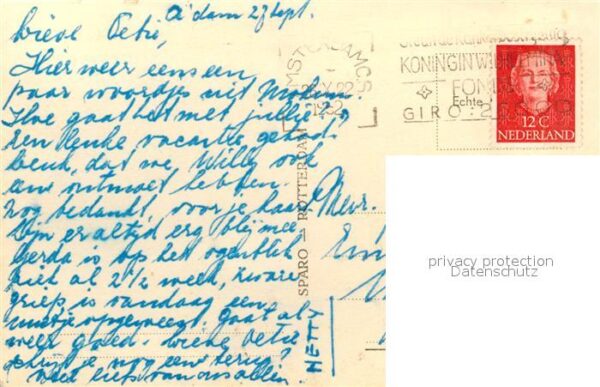 A'dam 27 sept.
Lieve Petie,
Hier weer eens een
paar woordjes uit Mokum.
Hoe gaat het met jullie?
Een leuke vacantie gehad?
Leuk, dat we Willy ook
even ontmoet hebben.
Nog bedankt, voor je kaart
Zijn er altijd erg blij mee
Gerda is op het ogenblik
ziek al 2 1/2 week, zware
griep is vandaag een
uurtje opgeweest, gaat al
weer goed. Lieve Petie
schrijf je nog een terug?
Met liefs van ons allen.
NETTY
Mevr.
SPARO — ROTTERDAM
AMSTERDAM CS
1952
KONINGIN WILHELMINA
FONDS
GIRO: 2
Echte
12 C
NEDERLAND
privacy protection
Datenschutz